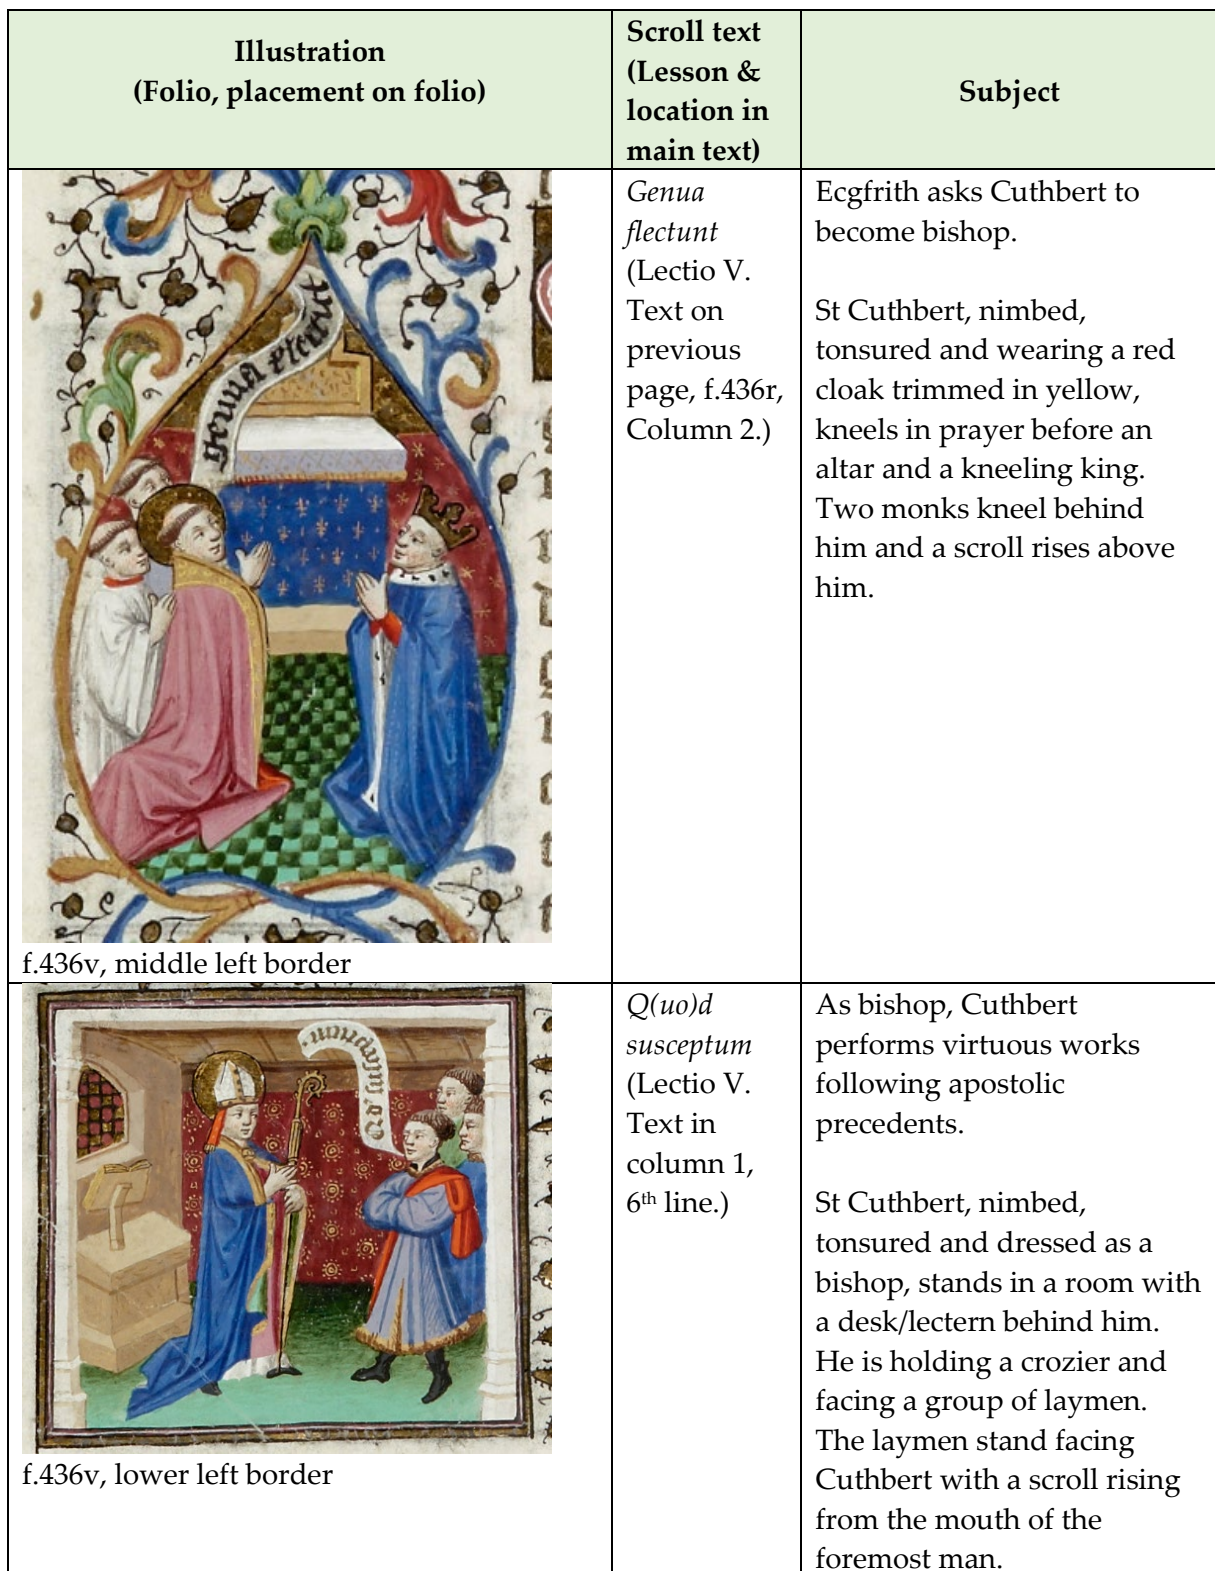 Illustration
(Folio, placement on folio)
Scroll text
(Lesson &
location in
main text)
Subject
genua flectunt
Genua
flectunt
(Lectio V.
Text on
previous
page, f.436r,
Column 2.)
Ecgfrith asks Cuthbert to
become bishop.
St Cuthbert, nimbed,
tonsured and wearing a red
cloak trimmed in yellow,
kneels in prayer before an
altar and a kneeling king.
Two monks kneel behind
him and a scroll rises above
him.
f.436v, middle left border
Q(uo)d
susceptum
(Lectio V.
Text in
column 1,
6th line.)
As bishop, Cuthbert
performs virtuous works
following apostolic
precedents.
St Cuthbert, nimbed,
tonsured and dressed as a
bishop, stands in a room with
a desk/lectern behind him.
He is holding a crozier and
facing a group of laymen.
The laymen stand facing
Cuthbert with a scroll rising
from the mouth of the
foremost man.
f.436v, lower left border